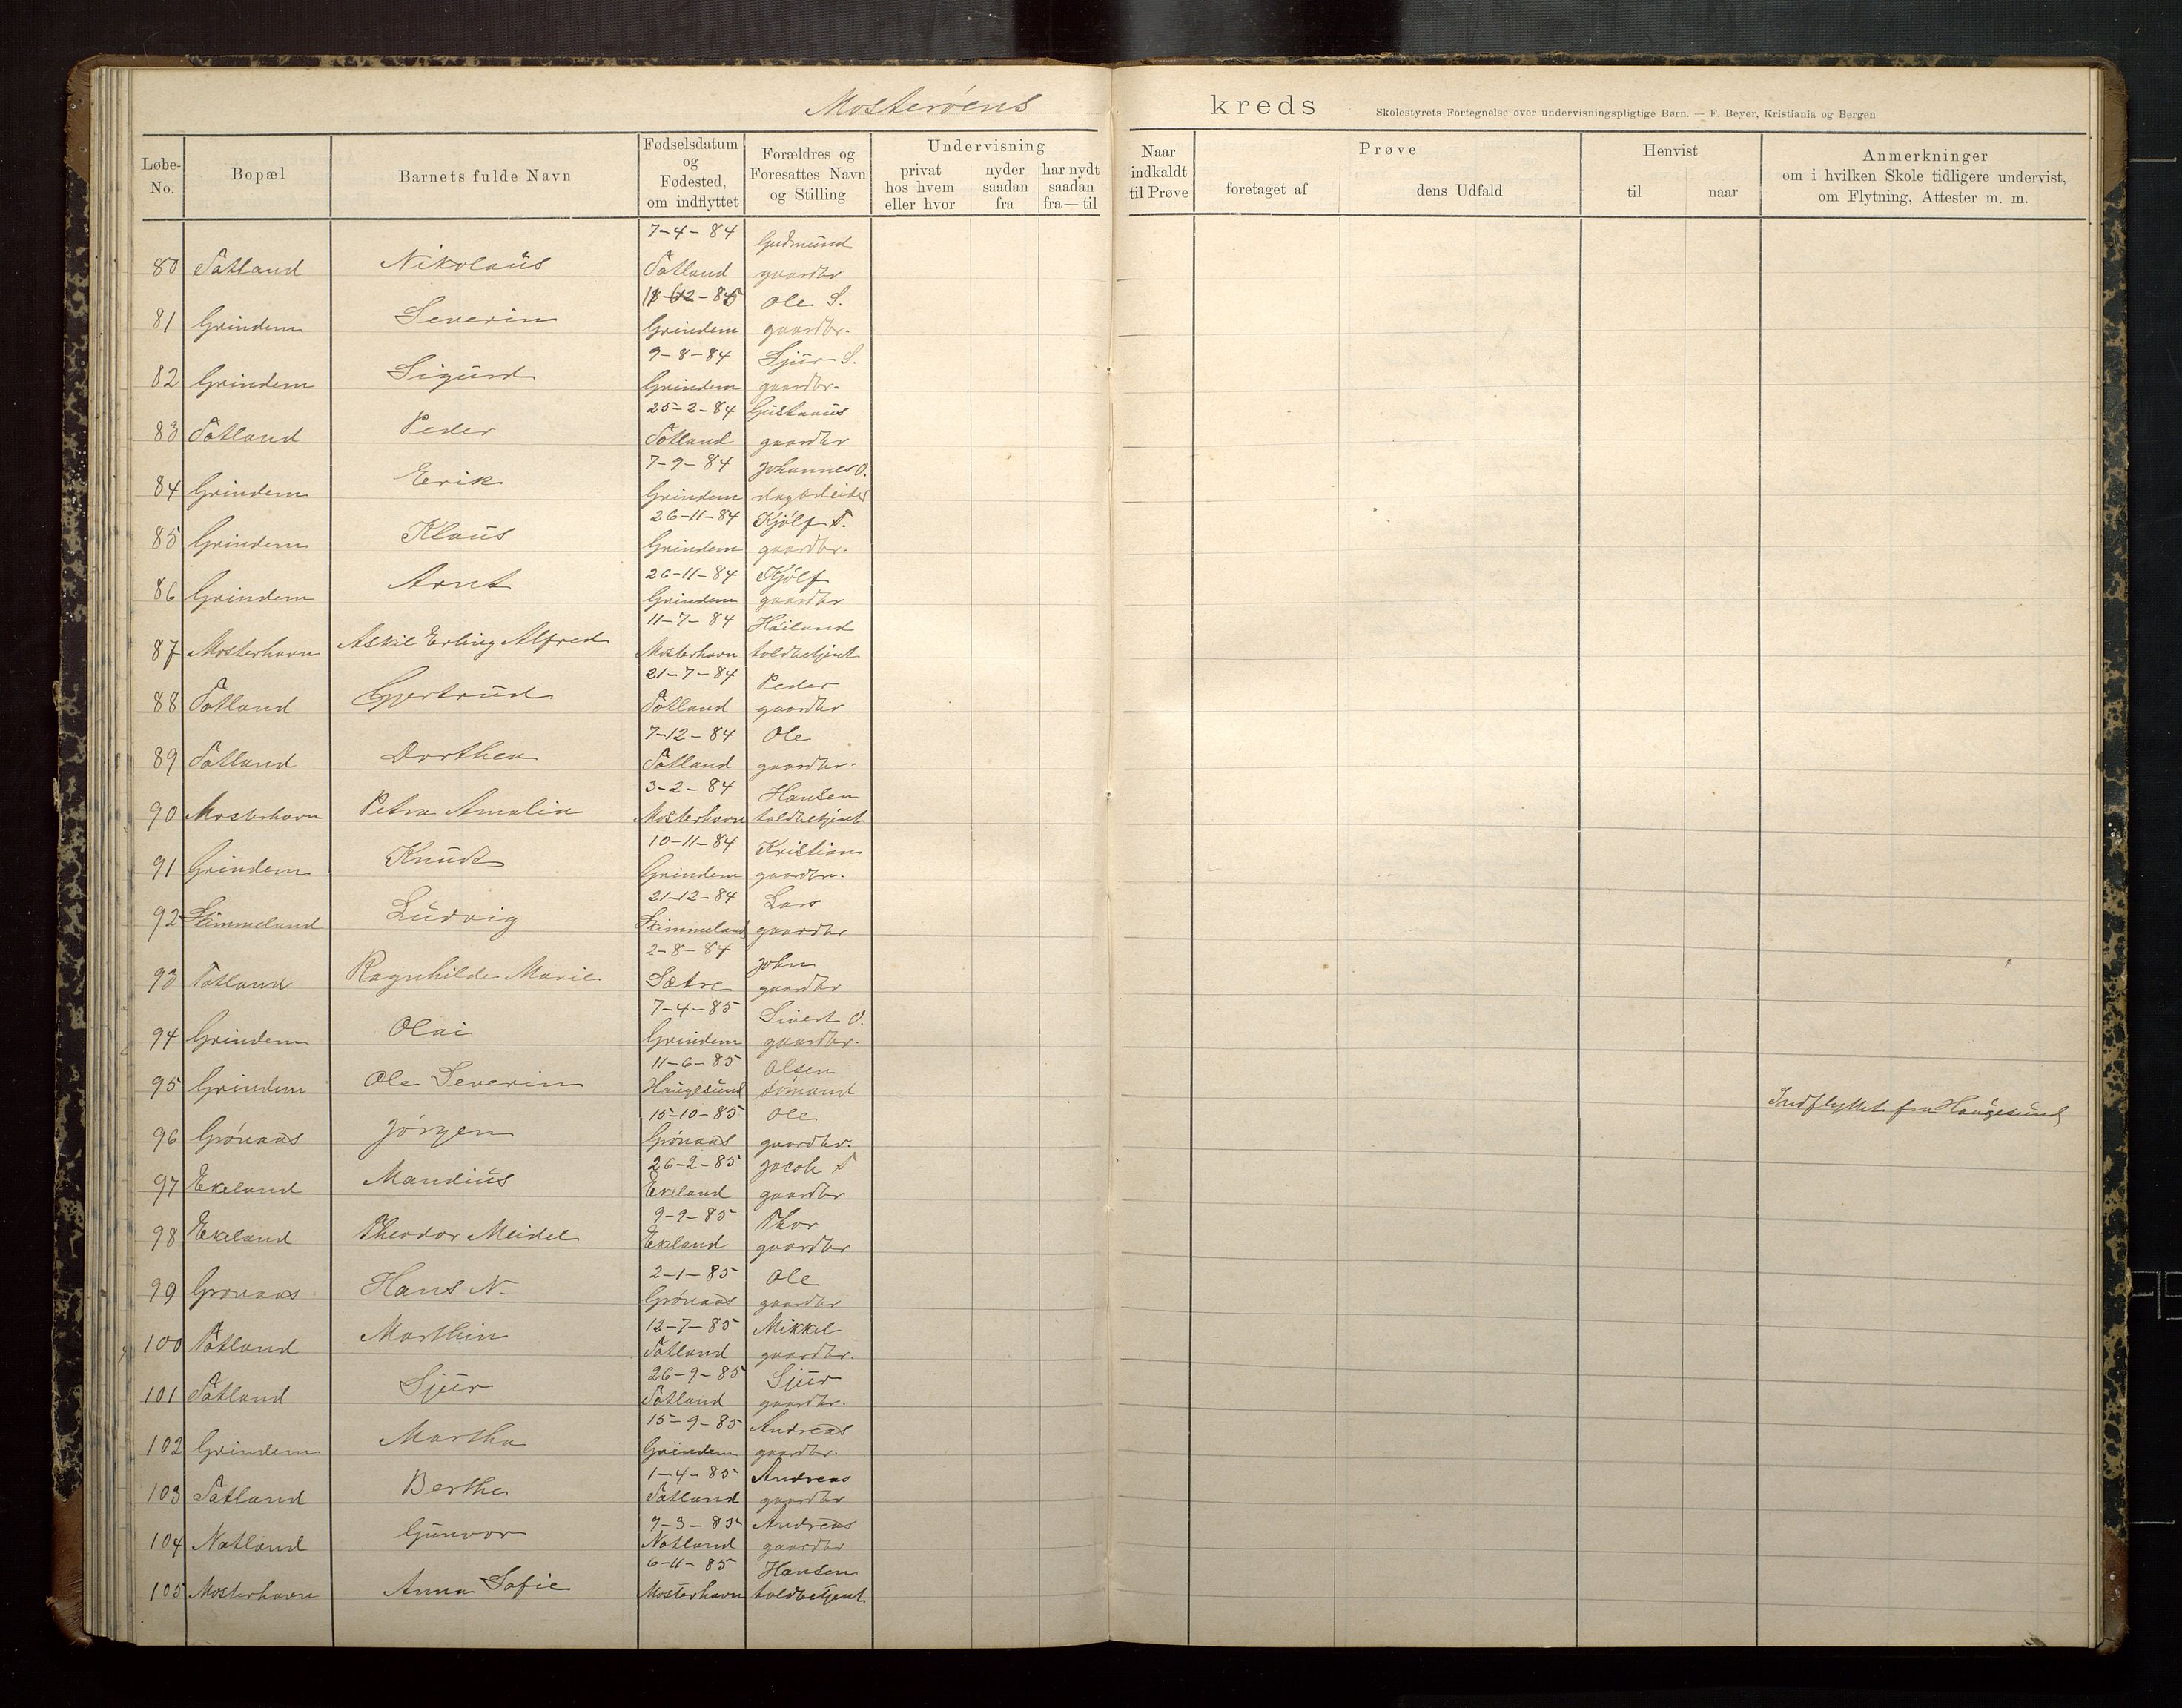 Mosterøens kreds
Skolestyrets Fortegnelse over undervisningspligtige Børn. — F. Beyer, Kristiania og Bergen
Løbe-No. Bopæl Barnets fulde Navn Fødselsdatum og Fødested, om indflyttet Forældres og Foresattes Navn og Stilling Undervisning privat hos hvem eller hvor nyder saadan fra har nydt saadan fra—til Naar indkaldt til Prøve Prøve foretaget af dens Udfald Henvist til naar Anmerkninger om i hvilken Skole tidligere undervist, om Flytning, Attester m. m.
7-4-84 Gudmund
80 Totland Nikolaus Totland gaardbr
12-85 Ole S.
81 Grindem Severin Grindem gaardbr.
9-8-84 Sjur S.
82 Grindem Sigurd Grindem gaardbr.
25-2-84 Gustavus
83 Totland Peder Totland gaardbr
7-9-84 Johannes O.
84 Grindem Erik Grindem dagarbeider
26-11-84 Kjølf T.
85 Grindem Klaus Grindem gaardbr.
26-11-84 Kjølf
86 Grindem Arnt Grindem gaardbr
11-7-84 Høiland
87 Mosterhavn Askil Erling Alfred Mosterhavn toldbetjent
21-7-84 Peder
88 Totland Gjertrud Totland gaardbr
7-12-84 Ole
89 Totland Dorthea Totland gaardbr.
3-2-84 Hansen
90 Mosterhavn Petra Amalia Mosterhavn toldbetjent
10-11-84 Kristian
91 Grindem Knudt Grindem gaardbr.
21-12-84 Lars
92 Skimmeland Ludvig Skimmeland gaardbr
2-8-84 John
93 Totland Ragnhilde Marie Sætre gaardbr
7-4-85 Sivert O.
94 Grindem Olai Grindem gaardbr.
11-6-85 Olsen
95 Grindem Ole Severin Haugesund sømand Indflyttet fra Haugesund
15-10-85 Ole
96 Grønaas Jørgen Grønaas gaardbr.
26-2-85 Jacob T
97 Ekeland Mandius Ekeland gaardbr
9-9-85 Thor
98 Ekeland Theodor Meidel Ekeland gaardbr
2-1-85 Ole
99 Grønaas Hans N. Grønaas gaardbr
12-7-85 Mikkel
100 Totland Marthin Totland gaardbr.
26-9-85 Sjur
101 Totland Sjur Totland gaardbr.
15-9-85 Andreas
102 Grindem Martha Grindem gaardbr.
1-4-85 Andreas
103 Totland Berthe Totland gaardbr
9-3-85 Andreas
104 Natland Gunvor Natland gaardbr
6-11-85 Hansen
105 Mosterhavn Anna Sofie Mosterhavn toldbetjent